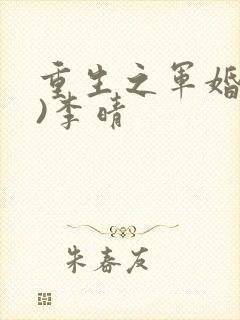 重生之军婚
)李晴
朱春友